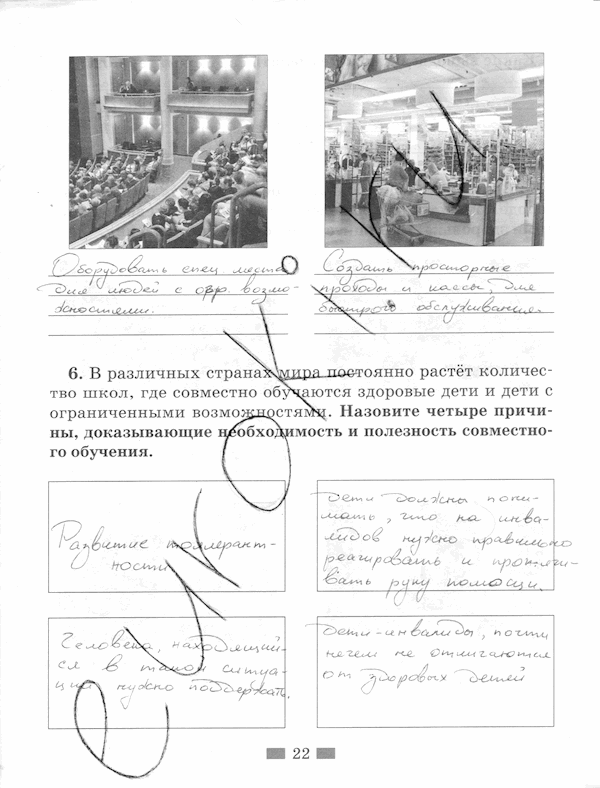 Оборудовать спец места
для людей с огр. возмо-
жностями.
Создать просторные
проходы и кассы, для
быстрого обслуживание.
6. В различных странах мира постоянно растёт количес-
тво школ, где совместно обучаются здоровые дети и дети с
ограниченными возможностями. Назовите четыре причи-
ны, доказывающие необходимость и полезность совместно-
го обучения.
Развитие толлерант-
ности
Дети должны пони-
мать, что на инва-
лидов нужно правильно
реагировать и протяги-
вать руку помощи.
Человека, находящий-
ся в такой ситуа-
ции нужно поддержать.
Дети-инвалиды, почти
нечем не отличаются
от здоровых детей
22